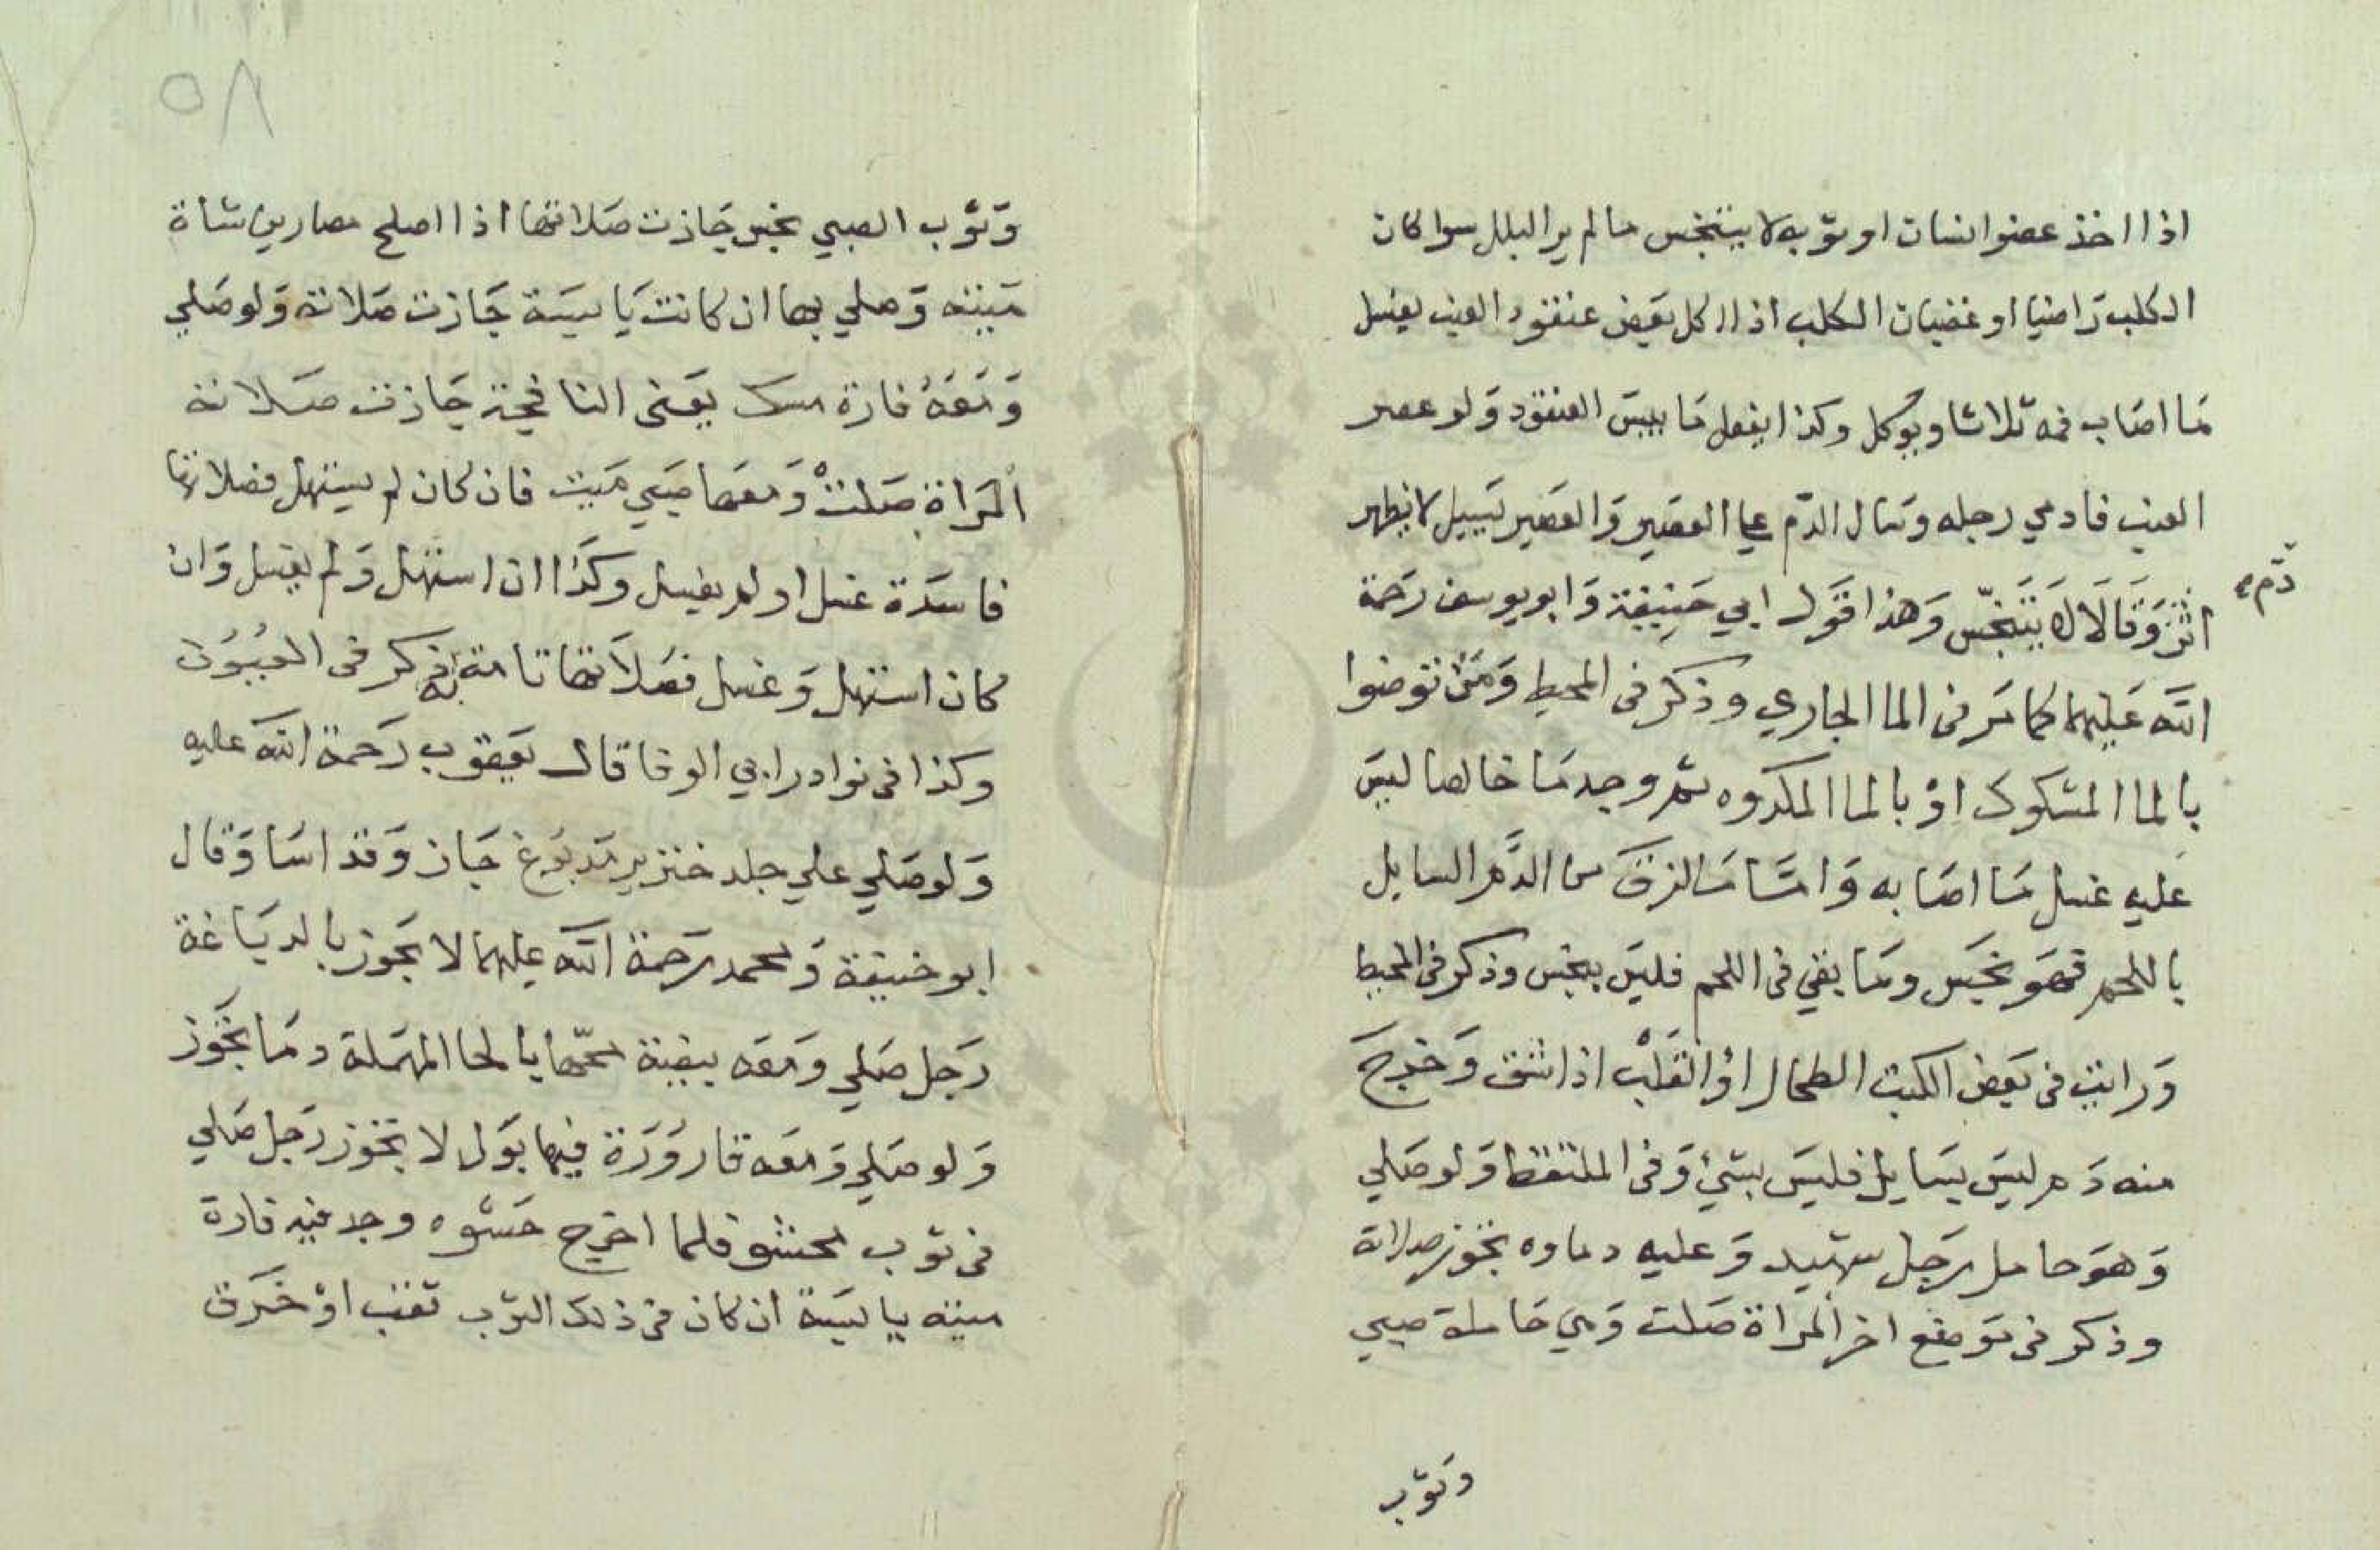 اذا اخذ عضو انسان او ثوبه لا يتنجس مالم ير البلل سوا كان
الكلب راضيا او غضبان الكلب اذا اكل بعض عنقود العنب يغسل
مَا اصَاب فمه ثلاثا ويوكل وكذا يفعل مَا يبس العنقود وَلو عصر
العنب فادمي رجله وسَال الدّم علي العصير وَالعَصير يسيل لا يظهر
دّم
اثر وَقَالَا لَا يَتنَجّس وَهذا قَول ابي حَنِيفة وَابو يوسف رَحمة
الله عَليهما كما مَر فى الما الجاري وذكر فى المحيط وَمَن توضوا
بالما المشكوك اوْ بالما المكروه ثمر وجد مَا خالصا ليسَ
عَليه غسل مَا اصَابه وَامَّا مَا لزق من الدَّم السايل
باللحم فهوَ نجَس ومَا بقي فى اللحم فليسَ بنجس وذكر فى المحيط
وَرايت فى بَعض الكتب الطحال اوْ القَلبْ اذا شق وَخرجَ
منه دَم ليسَ بسَايل فليسَ بشيْ وَفى الملتقط وَلو صَلي
وَهوَ حامل رَجل شهيد وَعليه دماوه تجوز صلاته
وذكر فى مَوضع اخر المراة صَلت وَهي حَاملة صبي
وثوب
٥٨
وَثوب الصبي نجس جَازت صَلاتها اذا اصلح مصارين شاة
مَيته وَصلي بها ان كانت يَابسَة جَازت صَلاته وَلو صَلي
وَمَعَهُ فارة مسك يَعنى النافجة جَازت صَلاته
المَراة صَلتْ وَمعَها صَبي مَيت فان كان لم يستهل فصلاتها
فاسَدة غسل او لم يغسل وكذَا ان استهَل وَلم يغسل وَان
كان استهل وَغسل فصَلاتها تامة ذكر فى العيُوُن
وكذا فى نوادر ابي الوفا قال يَعقوب رَحمة اللَه عليه
وَلو صَلي علي جلد خنزير مَدبُوغ جَاز وَقد اسَا وَقال
ابو حنيفة وَمحمد رَحمة اللَه عليهما لا يَجوز بالدبَاغة
رَجل صَلي وَمَعَه بيضة محّها بالحا المهمَلة دمَا تَجُوز
وَلو صَلي وَمَعَه قارُورَة فيها بَول لا تجَوز رَجل صَلي
فى ثوب محشو فلما اخرج حَشوه وجد فيه فارة
ميته يابسَة ان كان فى ذلك الثوب ثقب اوْ خَرَق